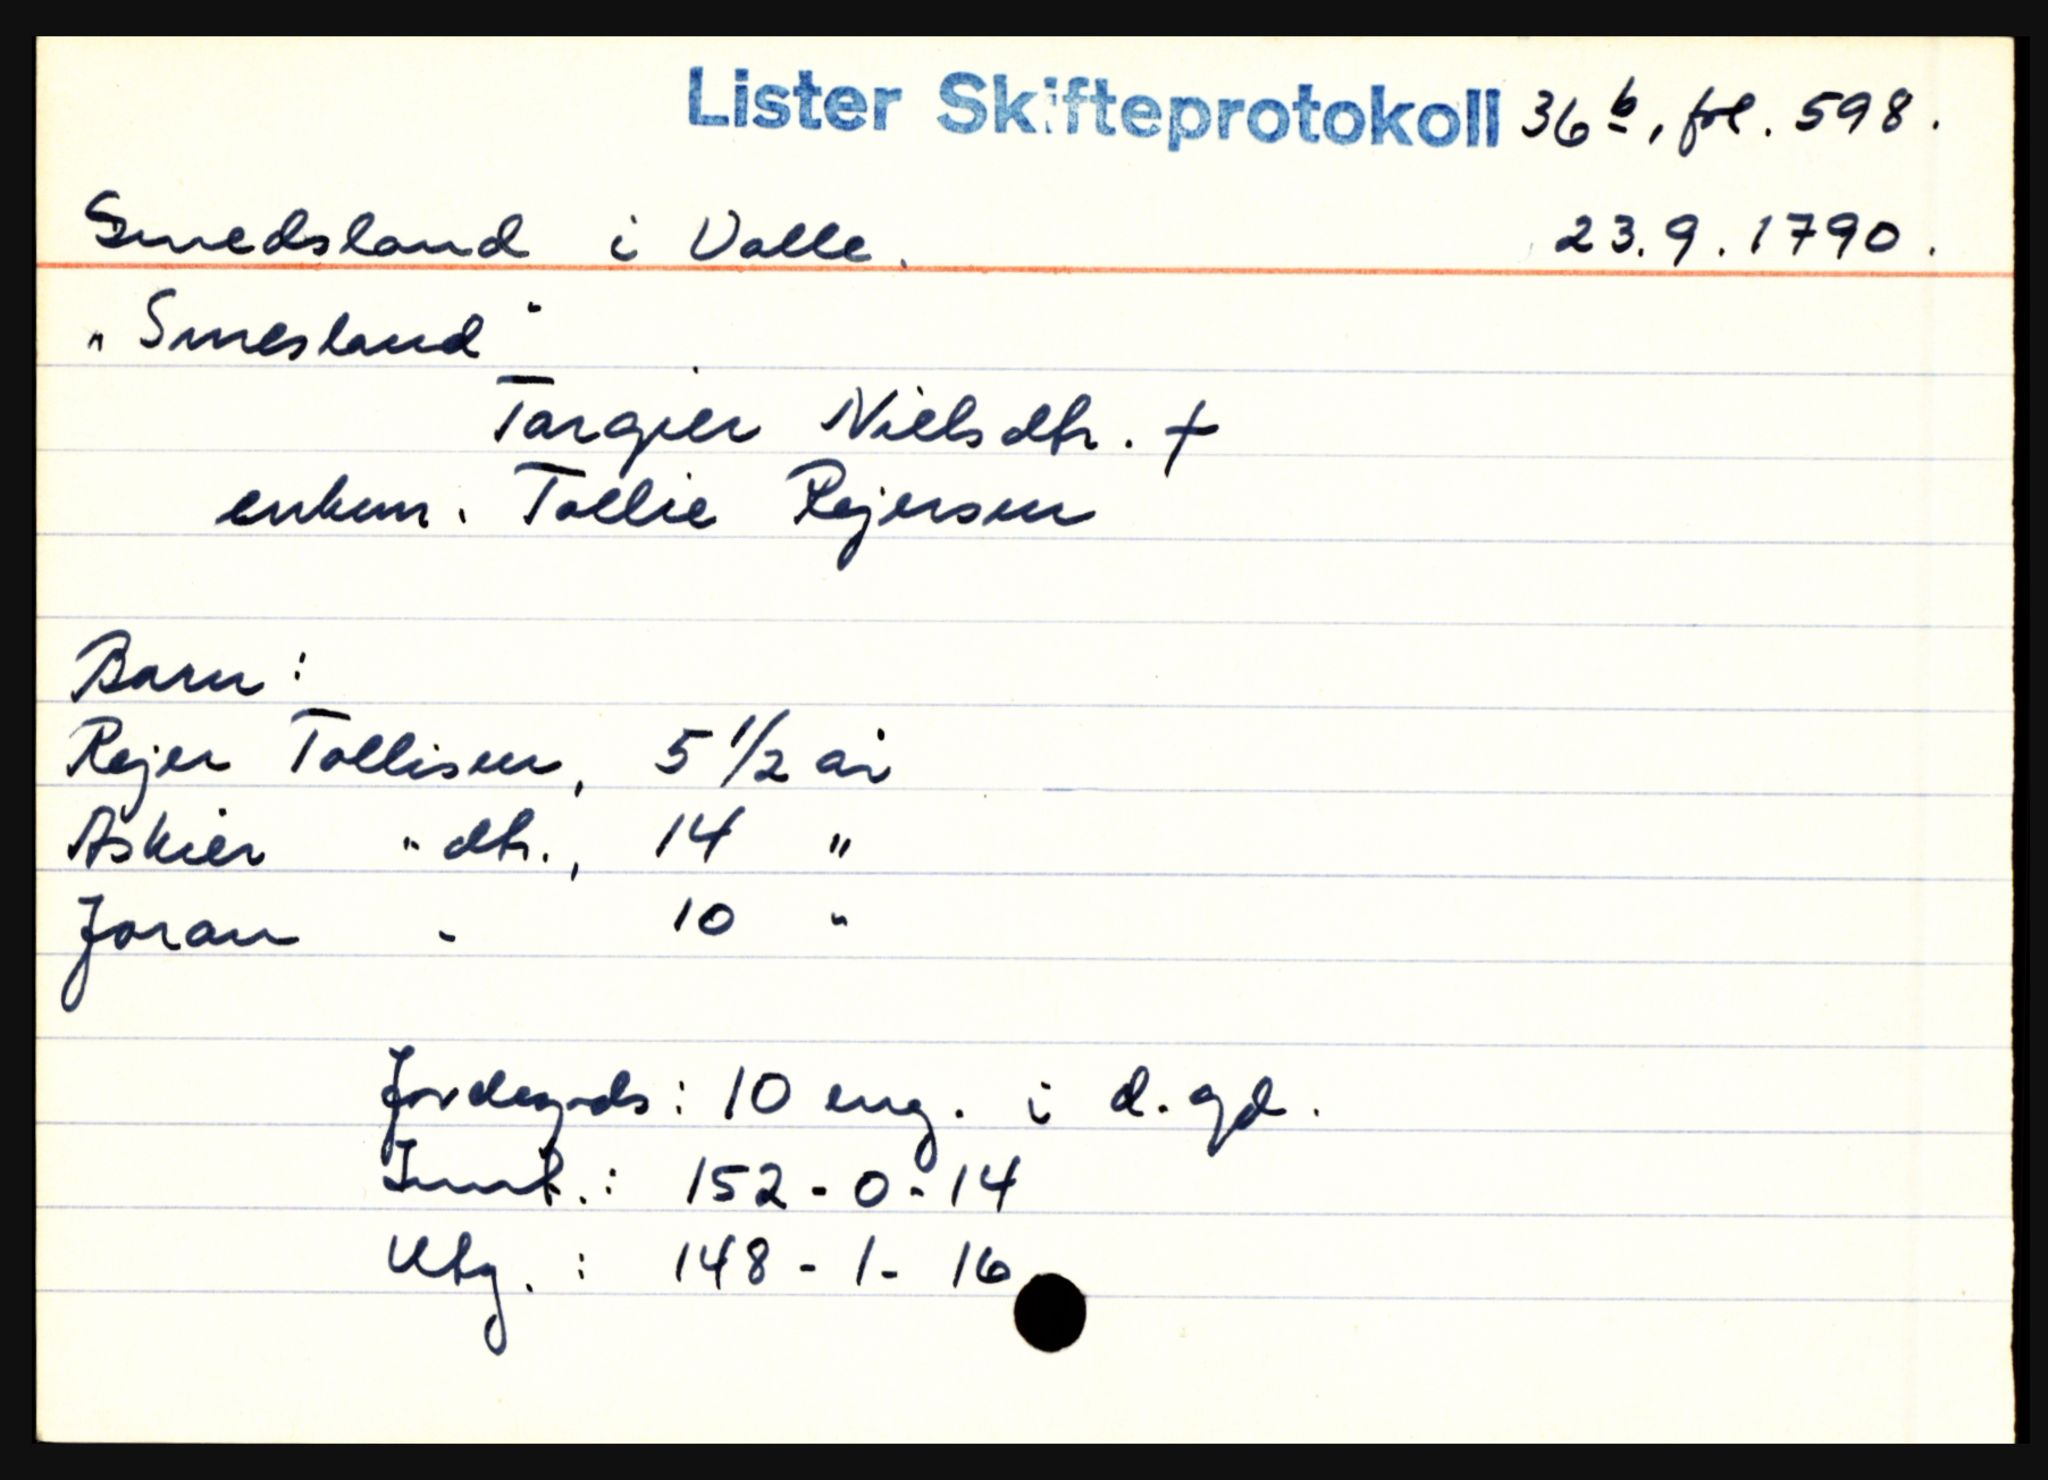 Lister Skifteprotokoll 36b, fol. 598.
Smedsland i Valle. 23.9.1790.
"Smesland"
Targier Nielsdtr. †
enkem. Tollie Rejersen
Barn:
Rejer Tollisen, 5 1/2 år
Askier " dtr., 14 "
Joran " 10 "
Jordegods: 10 eng. i d. gd.
Innt.: 152-0-14
Utg.: 148-1-16